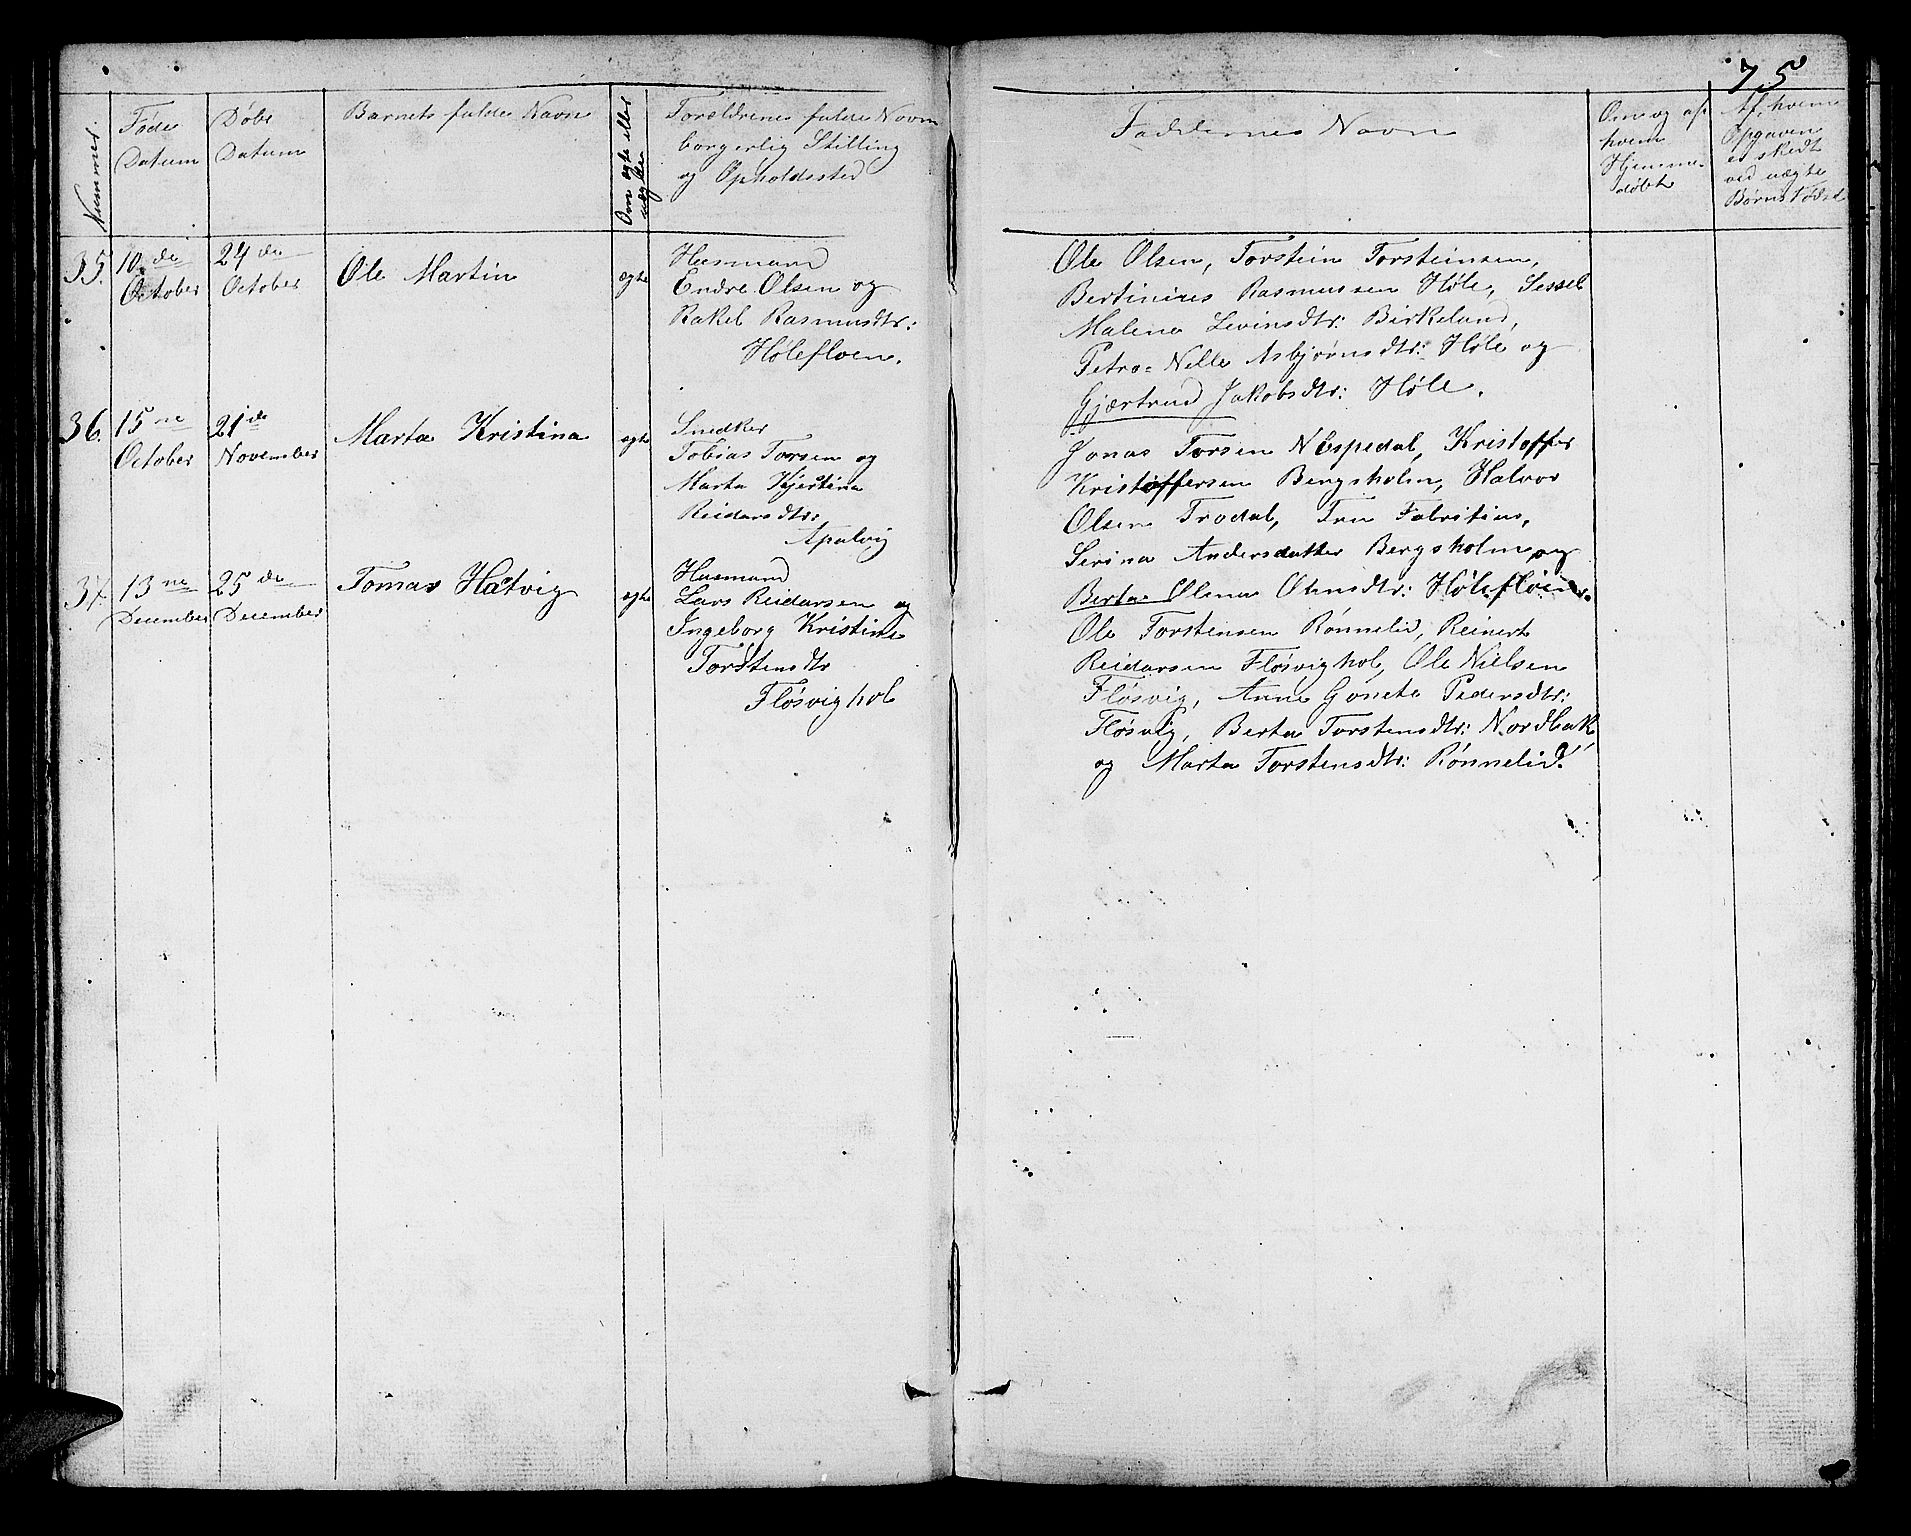 75
Nummer.
Føde
Datum
Døbe
Datum
Barnets fulde Navn
Om ægte eller
uægte
Forældrenes fulde Navn
borgerlig Stilling
og Opholdssted
Faddernes Navn
Om og af
hvem
Hjemme-
døbt
Af hvem
Opgaven
er skedt
ved uægte
Børns Fødsel
35.
10de
October
24de
October
Ole Martin
ægte
Husmand
Endre Olsen og
Rakel Rasmusdtr:
Hølefloen.
Ole Olsen, Torstein Torsteinsen,
Bertinius Rasmussen Høle, Sessel
Malena Levinsdtr: Birkeland,
Petro-Nelle Asbjørnsdtr: Høle og
Gjærtrud Jakobsdtr: Høle.
36.
15ne
October
21de
November
Marta Kristina
ægte
Snedker
Tobias Torsen og
Marta Kjestina
Reidarsdtr:
Apalvig
Jonas Torsen Nespedal, Kristoffer
Kristoffersen Bergsholm, Halvor
Olsen Trodal, Fru Fabritius,
Serina Andersdatter Bergsholm og
Berta Olena Olensdtr: Hølefloen.
37.
13ne
December
25de
December
Tomas Hatvig
ægte
Husmand
Lars Reidarsen og
Ingeborg Kristine
Torstensdtr
Fløsvighol
Ole Torstensen Rønnelid, Reinert
Reidarsen Fløsvighol, Ole Nielsen
Fløsvig, Anne Goneta Pedersdtr:
Fløsvig, Berta Torstensdtr: Nordbak
og Marta Torstensdtr: Rønnelid.